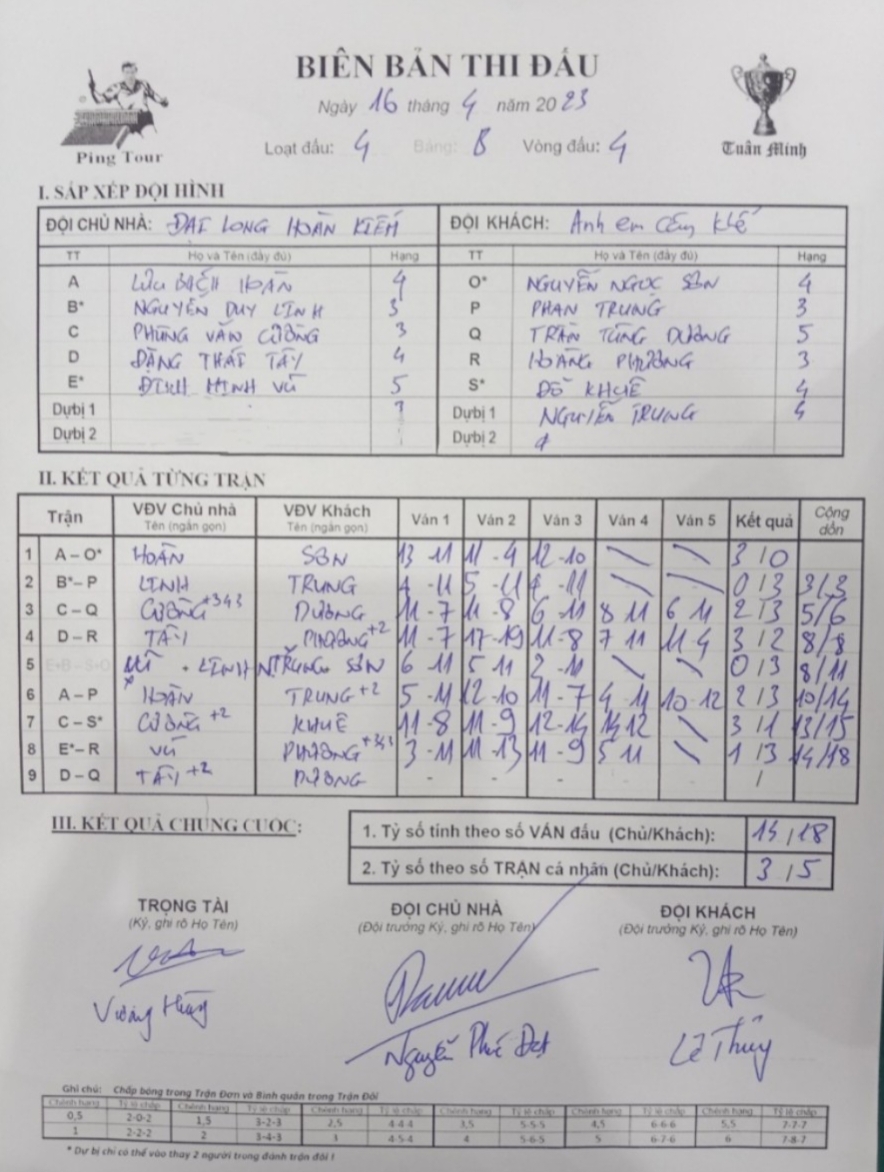 BIÊN BẢN THI ĐẤU
Ngày 16 tháng 4 năm 2023
Loạt đấu: 4 Bảng: B Vòng đấu: 4
Ping Tour
Tuấn Minh
I. SẮP XẾP ĐỘI HÌNH
ĐỘI CHỦ NHÀ: ĐẠI LONG HOÀN KIẾM ĐỘI KHÁCH: Anh em Cây Khế
TT Họ và Tên (đầy đủ) Hạng TT Họ và Tên (đầy đủ) Hạng
A LƯU BÁCH HOÀN 4 O* NGUYỄN NGỌC SƠN 4
B* NGUYỄN DUY LINH 3 P PHAN TRUNG 3
C PHÙNG VĂN CƯỜNG 3 Q TRẦN TÙNG DƯƠNG 5
D ĐẶNG THÁI TÂY 4 R HOÀNG PHƯƠNG 3
E* ĐINH MINH VŨ 5 S* ĐỖ KHUÊ 4
Dự bị 1 Dự bị 1 NGUYỄN TRUNG 4
Dự bị 2 Dự bị 2
II. KẾT QUẢ TỪNG TRẬN
Trận VĐV Chủ nhà Tên (ngắn gọn) VĐV Khách Tên (ngắn gọn) Ván 1 Ván 2 Ván 3 Ván 4 Ván 5 Kết quả Cộng dồn
1 A – O* HOÀN SƠN 13 - 11 11 - 4 12 - 10 \ \ 3 / 0
2 B* – P LINH TRUNG 4 - 11 5 - 11 4 - 11 \ \ 0 / 3 3/3
3 C – Q CƯỜNG +343 DƯƠNG 11 - 7 11 - 8 6 - 11 8 11 6 11 2 / 3 5/6
4 D – R TÂY PHƯƠNG +2 11 - 7 17 - 19 11 - 8 7 11 11 4 3 / 2 8/8
5 E+B – S+O VŨ + LINH N.TRUNG SƠN 6 11 5 11 2 - 11 \ \ 0 / 3 8/11
6 A – P HOÀN TRUNG +2 5 - 11 12 - 10 11 - 7 4 - 11 10 - 12 2 / 3 10/14
7 C – S* CƯỜNG +2 KHUÊ 11 - 8 11 - 9 12 - 14 14 12 \ 3 / 1 13/15
8 E* – R VŨ PHƯƠNG +343 3 - 11 11 - 13 11 - 9 5 11 \ 1 / 3 14/18
9 D – Q TÂY +2 DƯƠNG - - - - - /
III. KẾT QUẢ CHUNG CUỘC:
1. Tỷ số tính theo số VÁN đấu (Chủ/Khách): 14 / 18
2. Tỷ số theo số TRẬN cá nhân (Chủ/Khách): 3 / 5
TRỌNG TÀI ĐỘI CHỦ NHÀ ĐỘI KHÁCH
(Ký, ghi rõ Họ Tên) (Đội trưởng Ký, ghi rõ Họ Tên) (Đội trưởng Ký, ghi rõ Họ Tên)
Vương Hùng Nguyễn Phú Đạt Lê Thủy
Ghi chú: Chấp bóng trong Trận Đơn và Bình quân trong Trận Đôi
Chênh hạng Tỷ lệ chấp Chênh hạng Tỷ lệ chấp Chênh hạng Tỷ lệ chấp Chênh hạng Tỷ lệ chấp Chênh hạng Tỷ lệ chấp Chênh hạng Tỷ lệ chấp
0,5 2-0-2 1,5 3-2-3 2,5 4-4-4 3,5 5-5-5 4,5 6-6-6 5,5 7-7-7
1 2-2-2 2 3-4-3 3 4-5-4 4 5-6-5 5 6-7-6 6 7-8-7
* Dự bị chỉ có thể vào thay 2 người trong đánh trận đôi !